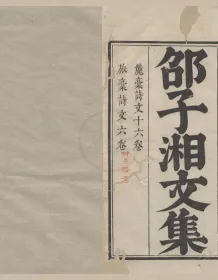 邵子湘文集
麓稾詩文十六卷
旅稾詩文六卷